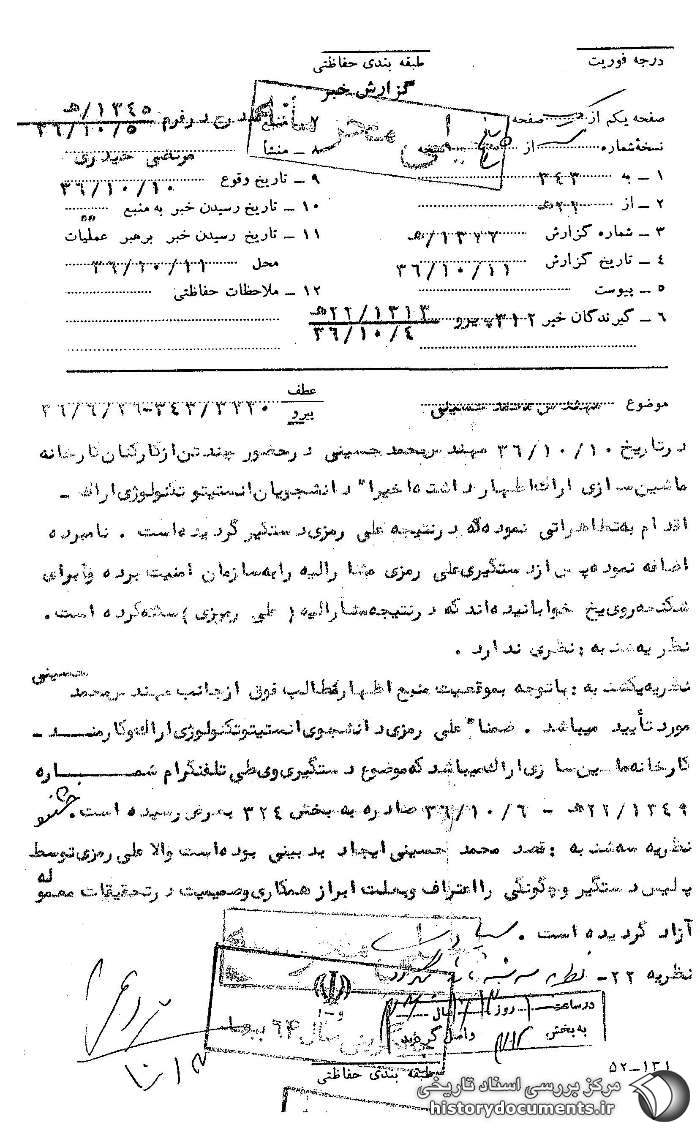 درجه فوریت
طبقه بندی حفاظتی
گزارش خبر
صفحه یکم از صفحه
نسخه شماره از
خیلی محرمانه
۱ – به ۳۴۳
۲ – از ۲۲ﻫ
۳ – شماره گزارش ۱۳۷۷/ﻫ
۴ – تاریخ گزارش ۳۶/۱۰/۱۱
۵ – پیوست
۶ – گیرندگان خبر ۳۱۲ پیرو ۲۲/۱۳۱۳ﻫ
۳۶/۱۰/۴
۷ – منبع ۱۳۴۵/ﻫ
۳۶/۱۰/۵
۸ – منشأ مرتضی حیدری
۹ – تاریخ وقوع ۳۶/۱۰/۱۰
۱۰ – تاریخ رسیدن خبر به منبع
۱۱ – تاریخ رسیدن خبر برهبر عملیات
محل ۳۶/۱۰/۱۱
۱۲ – ملاحظات حفاظتی
موضوع مهندس محمد حسینی
عطف
پیرو
۳۴۳/۳۲۲۰-۳۶/۶/۲۶
در تاریخ ۳۶/۱۰/۱۰ مهندس محمد حسینی در حضور چند تن از کارکنان کارخانه
ماشین سازی اراک اظهار داشته اخیرا" دانشجویان انستیتو تکنولوژی اراک –
اقدام به تظاهراتی نموده که در نتیجه علی رمزی دستگیر گردیده است . نامبرده
اضافه نموده پس از دستگیری علی رمزی مشارالیه را به سازمان امنیت برده و برای
شکنجه روی یخ خوابانیده اند که در نتیجه مشارالیه ( علی رمزی ) سکته کرده است .
نظریه شنبه : نظری ندارد .
نظریه یکشنبه : با توجه بموقعیت منبع اظهار مطالب فوق از جانب مهندس محمد حسینی
مورد تأیید میباشد . ضمنا" علی رمزی دانشجوی انستیتو تکنولوژی اراک و کارمند –
کارخانه ماشین سازی اراک میباشد که موضوع دستگیری وی طی تلفنگرام شماره
۲۲/۱۳۴۹ﻫ - ۳۶/۱۰/۶ صادره به بخش ۳۲۴ بعرض رسیده است .
نظریه سه شنبه : قصد محمد حسینی ایجاد بدبینی بوده است والا علی رمزی توسط
پلیس دستگیر و چگونگی را اعتراف و بعلت ابراز همکاری و صمیمیت در تحقیقات معموله
آزاد گردیده است .
نظریه ۲۲-
در ساعت روز سال
به بخش واصل گردید
طبقه بندی حفاظتی
۵۲–۱۳۱
مرکز بررسی اسناد تاریخی
historydocuments.ir